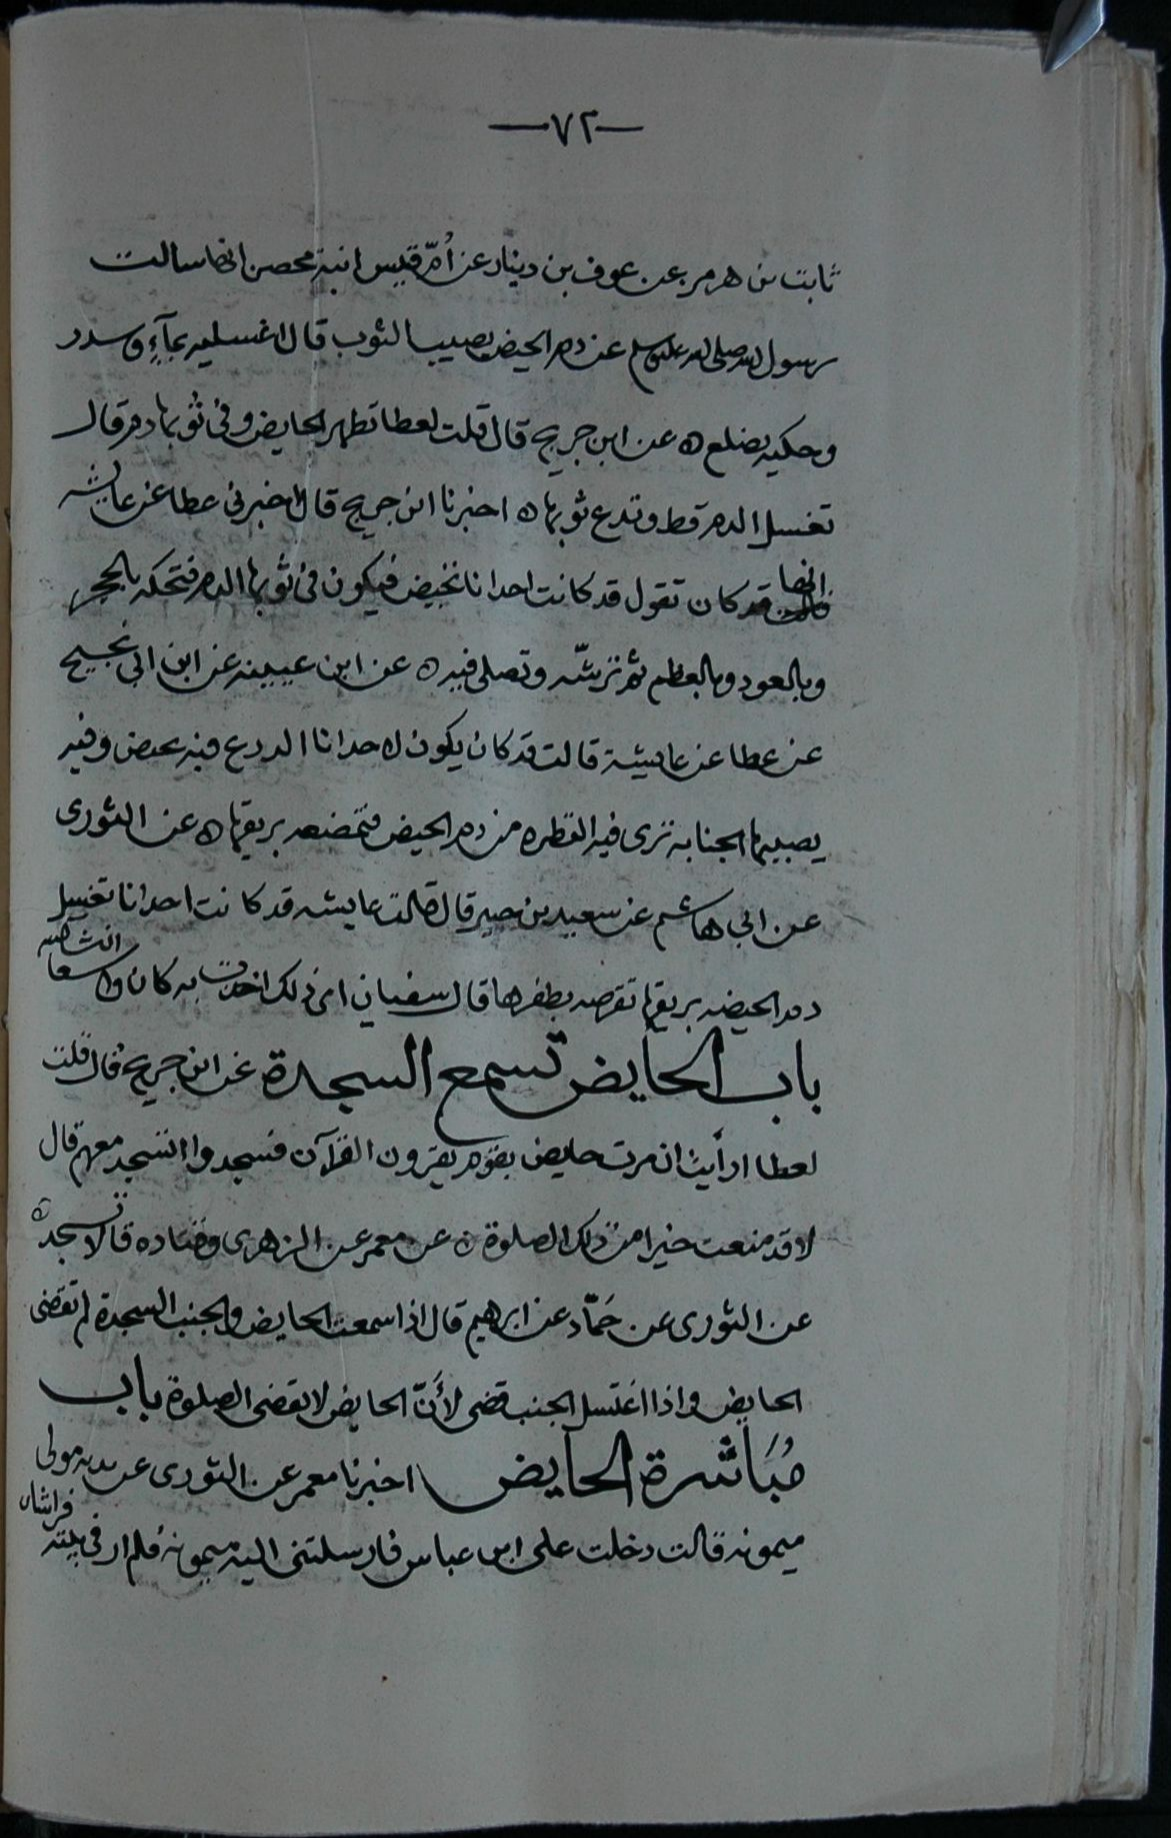 —٧٢—
ثابت بن هرمز عن عوف بن دينار عن أمّ قيس ابنة محصن انها سالت
رسول الله صلى الله عليه وسلم عن دم الحيض يصيب الثوب قال اغسليه بمآءٍ وسدر
وحكيه بضلع ه عن ابن جريج قال قلت لعطا تطهر الحايض وفى ثوبها دم قال
تغسل الدم قط وتدع ثوبها ه اخبرنا ابن جريج قال اخبرنى عطا عن عايشه
انها قد كان تقول قد كانت احدانا تحيض فيكون فى ثوبها الدم فتحكه بالحجر
وبالعود وبالعظم ثم ترشّه وتصلى فيه ه عن ابن عيينه عن ابن ابى نجيح
عن عطا عن عايشة قالت قد كان يكون لاحدانا الدرع فيه تحيض وفيه
يصيبها الجنابه ترى فيه القطره من دم الحيض فتمضعه بريقها ه عن الثورى
عن ابى هاشم عن سعيد بن جبير قال قالت عايشه قد كانت احدانا تغسل
دم الحيضه بريقها تقرصه بظفرها قال سفيان اى ذلك اخذت به كان واسعا انشا الله
باب الحايض تسمع السجدة عن ابن جريج قال قلت
لعطا ارأيت ان مرت حايض بقوم يقرون القرآن فسجدوا اتسجد معهم قال
لا قد منعت خيرا من ذلك الصلوة ه عن معمر عن الزهرى وقتاده قالا تسجد ه
عن الثورى عن حَمّاد عن ابرهيم قال اذا سمعت الحايض والجنب السجدة لم تقضى
الحايض واذا اغتسل الجنب قضى لأنّ الحايض لا تقضى الصلوة باب
مُبَاشرة الحايض اخبرنا معمر عن الثورى عن بدبه مولى
ميمونه قالت دخلت على ابن عباس فارسلتنى اليه ميمونه فلم ار فى بيته فراشان